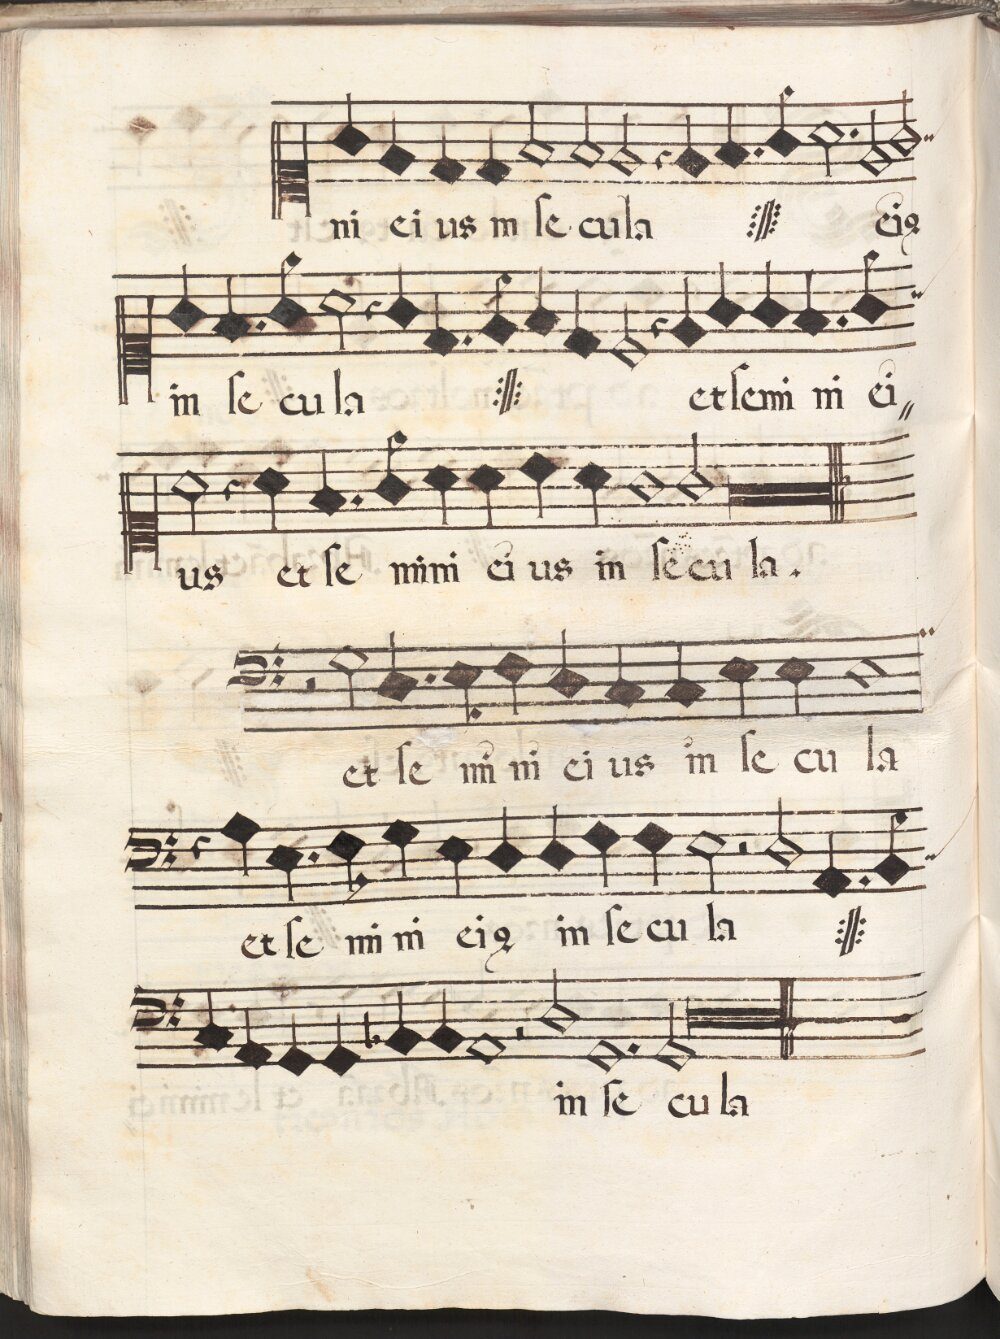 ni ei us in se cula eiꝯ
in se cu la et semi ni ei
us et se mini ei us in se cu la.
et se mi ni ei us in se cu la
et se mi ni eiꝯ in se cu la
in se cu la